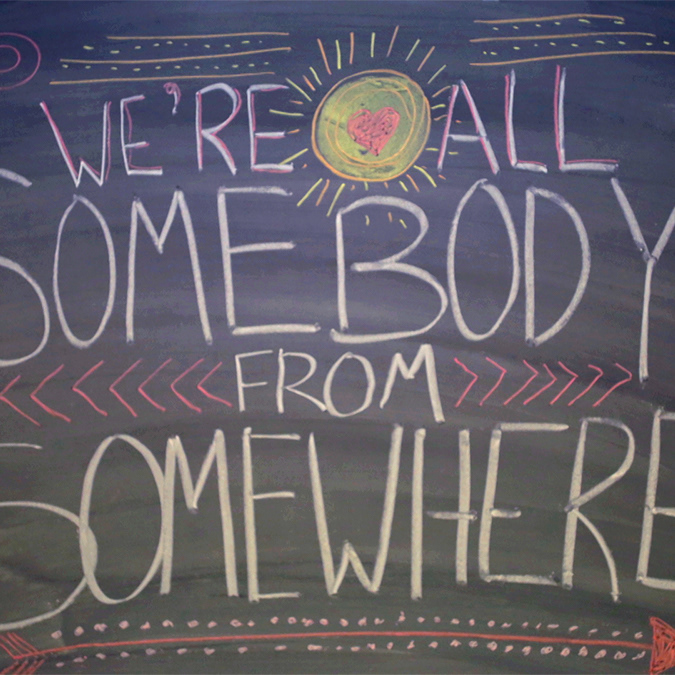 WE'RE ALL
SOMEBODY
FROM
SOMEWHERE